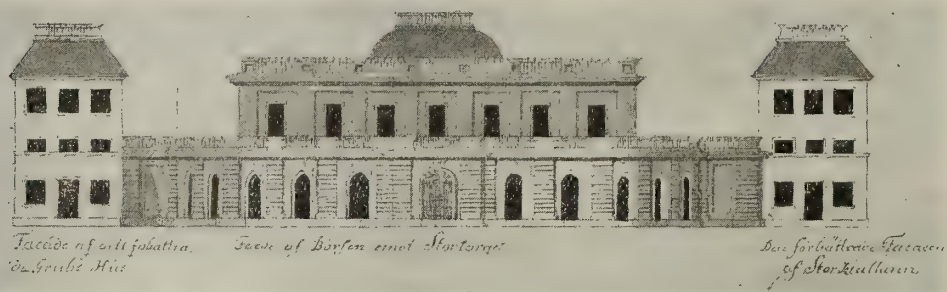 Facade af ett
Grubs Hus
Facade af Börsen emot Stortorget
Den förbättrade Facaden
af Storkiällaren.